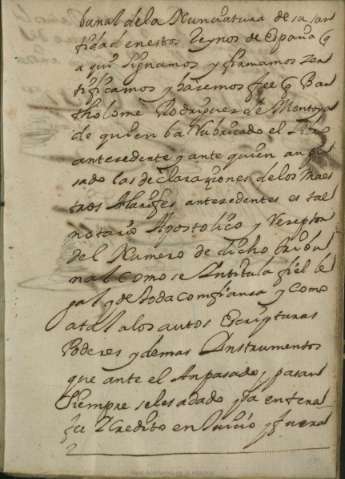 bunal de la Nunciatura de su san
tidad en estos Reynos de España q
a qui signamos y firmamos zer
tificamos y hazemos fee q Bar
tholome Rodriguez de Montoya
de quien ba Rubricado el
antecedente y ante quien an pa
sado las declaraziones de los Maes
tros Alarifes antezedentes es tal
notario Apostolico y Rezeptor
del Numero de dicho tribu
nal como se Antitula fiel le
gal y de toda comfianza y como
a tal a los autos Escripturas
Poderes y demas Anstrumentos
que ante el An pasado y pasan
Siempre se les a dado y da entera
fee Y Credito en Juicio y fuera